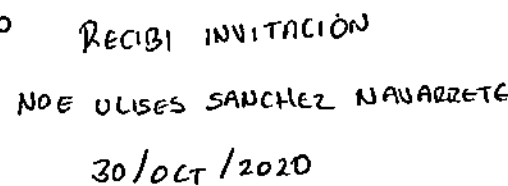 RECIBI INVITACIÓN
NOE ULISES SANCHEZ NAVARRETE
30/OCT/2020